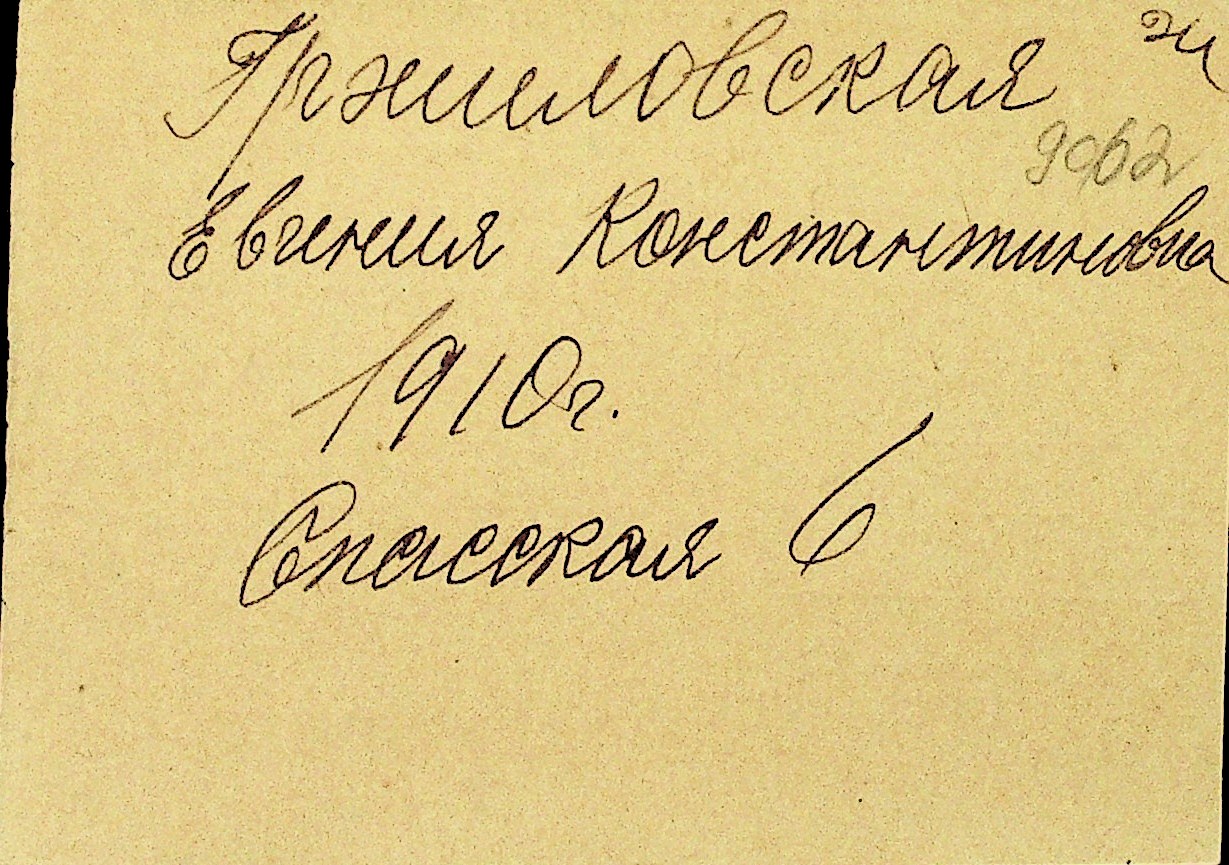 Гржиловская
Евгения Константиновна
1910г.
Спасская 6